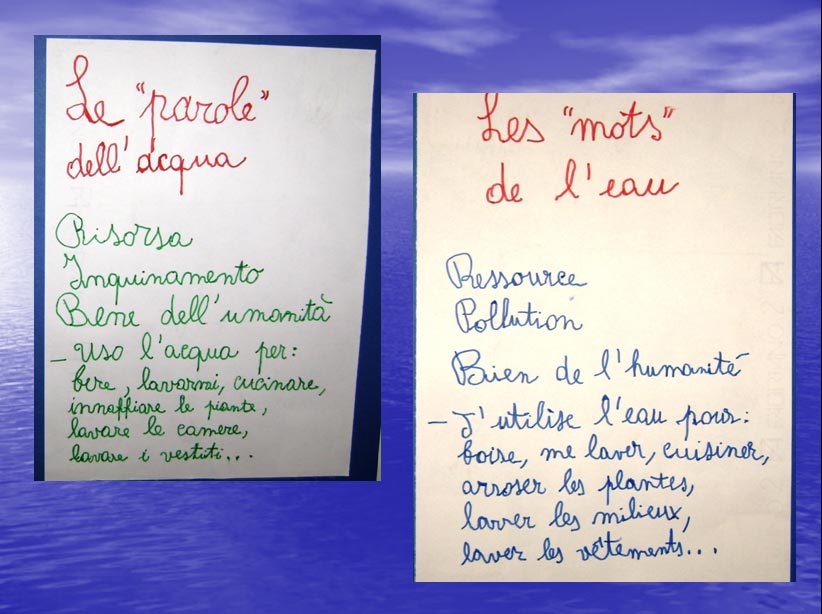 Le "parole"
dell'acqua
Risorsa
Inquinamento
Bene dell'umanità
- Uso l'acqua per:
bere, lavarmi, cucinare,
innaffiare le piante,
lavare le camere,
lavare i vestiti...
Les "mots"
de l'eau
Ressource
Pollution
Bien de l'humanité
- J'utilise l'eau pour:
boise, me laver, cuisiner,
arroser les plantes,
laver les milieux,
laver les vétements...